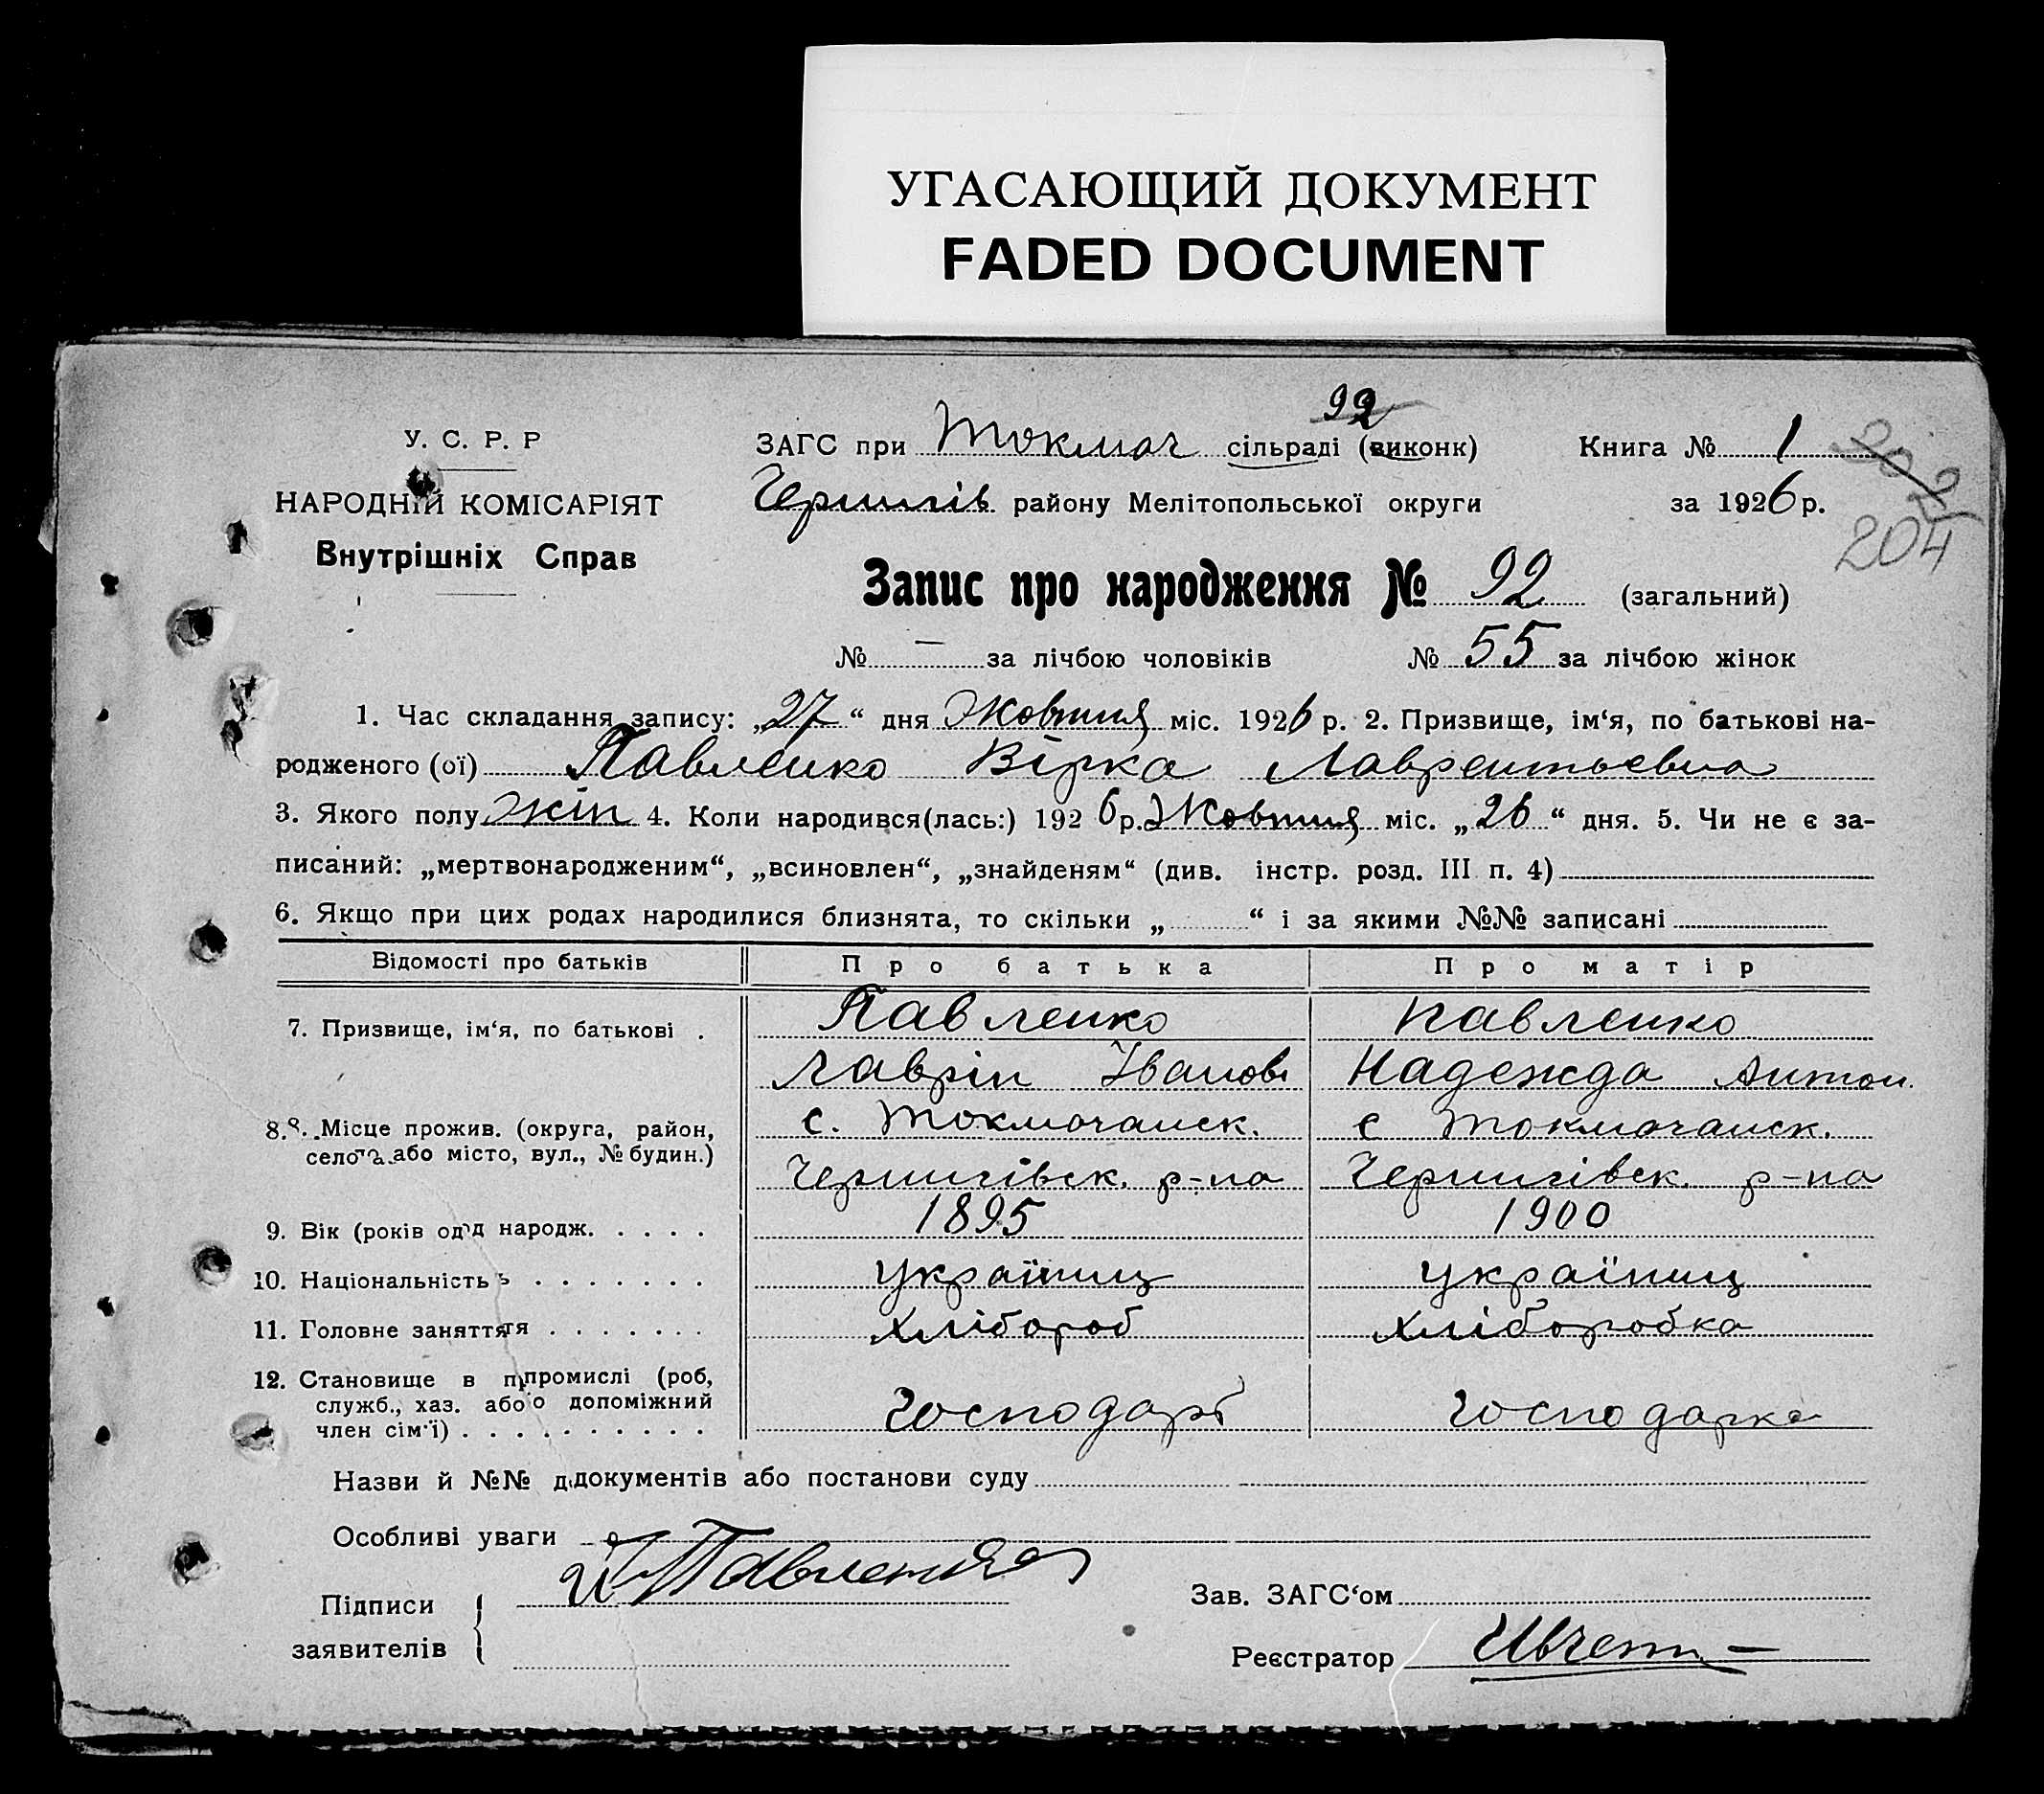 УГАСАЮЩИЙ ДОКУМЕНТ
FADED DOCUMENT
92
У. С. Р. Р
НАРОДНІЙ КОМІСАРІЯТ
Внутрішніх Справ
ЗАГС при Токмач сільраді (виконк) Книга № 1
202
Чернигів району Мелітопольської округи за 1926 р.
204
Запис про народження № 92 (загальний)
№ — за лічбою чоловіків № 55 за лічбою жінок
1. Час складання запису: „27“ дня Жовтня міс. 1926 р. 2. Призвище, ім‘я, по батькові на-
родженого (ої) Павленко Вірка Лаврентьевна
3. Якого полу жін 4. Коли народився(лась:) 1926 р. Жовтня міс. „26“ дня. 5. Чи не є за-
писаний: „мертвонародженим“, „всиновлен“, „знайденям“ (див. інстр. розд. III п. 4)
6. Якщо при цих родах народилися близнята, то скільки „ “ і за якими №№ записані
Відомості про батьків Про батька Про матір
7. Призвище, ім‘я, по батькові . Павленко Павленко
Лаврін Іванов Надежда Антон.
8. Місце прожив. (округа, район, с. Токмочанск. с Токмочанск.
село або місто, вул., № будин.) Чернигівск. р-на Чернигівск. р-на
9. Вік (років од народж. . . . . 1895 1900
10. Національність . . . . . . . українц українц
11. Головне заняття . . . . . . . хлібороб хлiборобка
12. Становище в промислі (роб,
служб., хаз. або допоміжний Господарь Господарка
член сім‘ї) . . . . . . . . . .
Назви й №№ документів або постанови суду
Особливі уваги
Павленко
Підписи Зав. ЗАГС‘ом
заявителів
Реєстратор